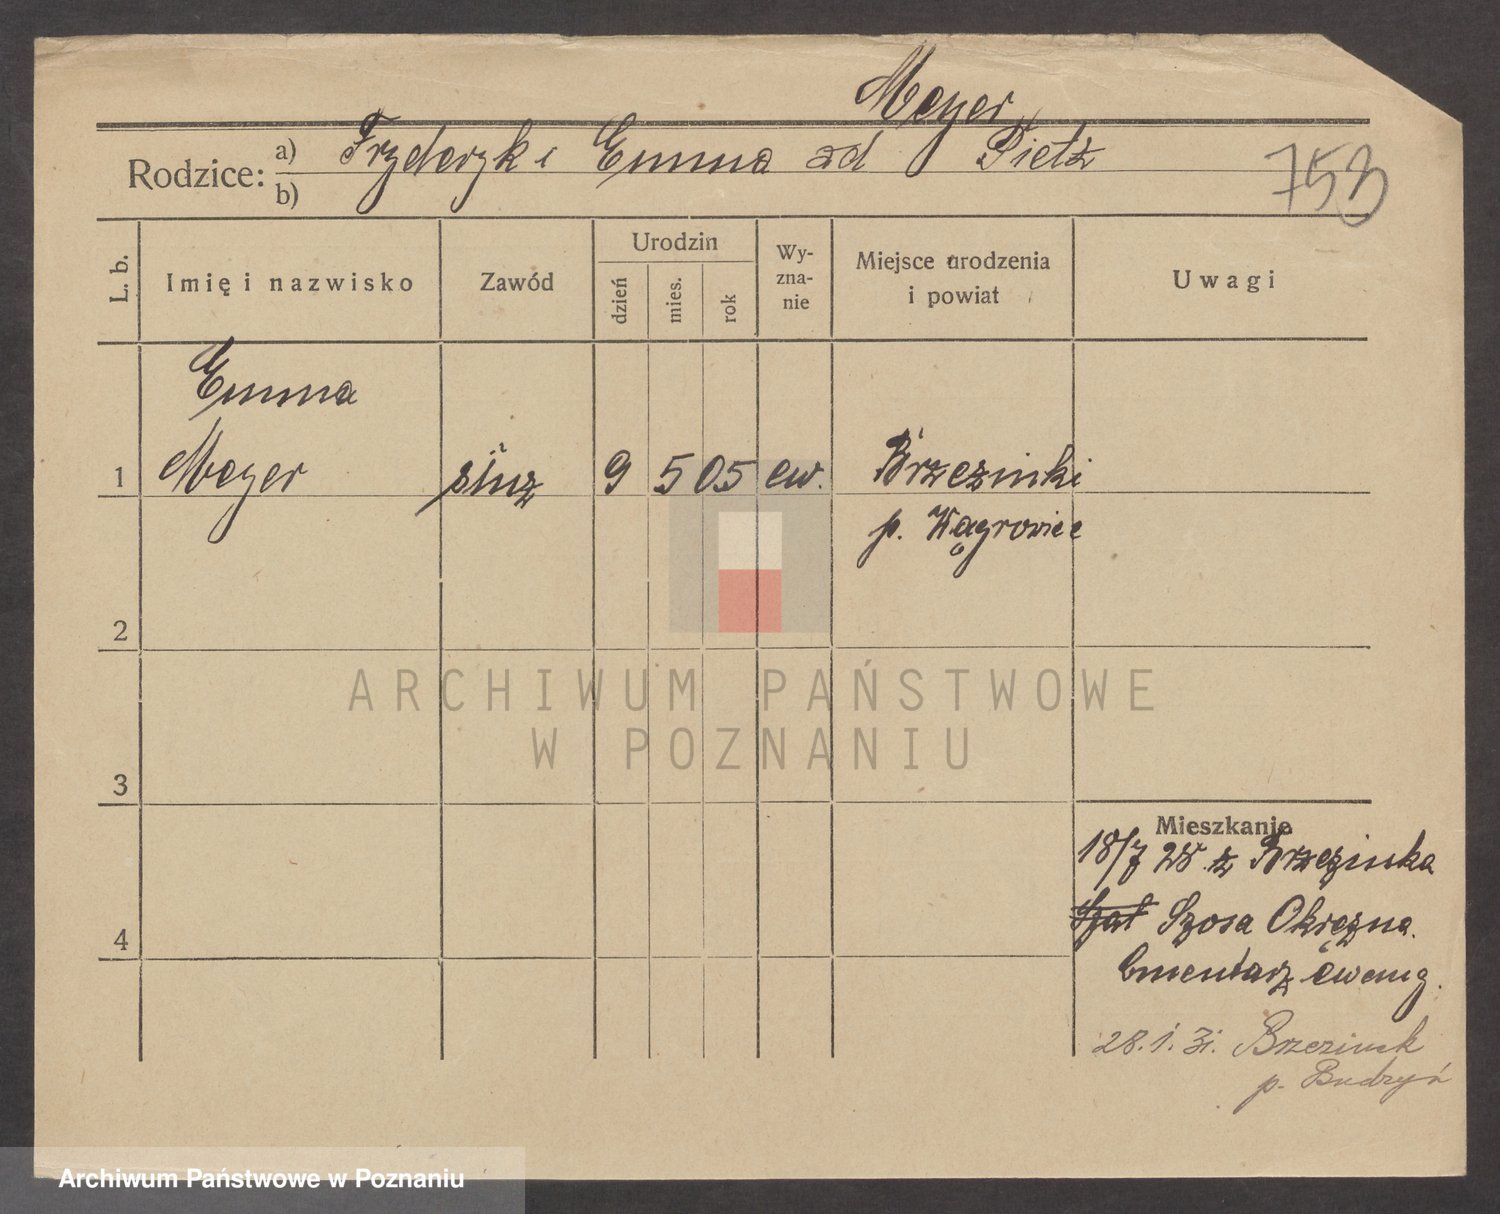 Meyer
Rodzice: a) Fryderyk i Emma ad Pietz
b)
753
L. b.
Imię i nazwisko
Zawód
Urodzin
dzień
mies.
rok
Wy-
zna-
nie
Miejsce urodzenia
i powiat
Uwagi
Emma
1 Meyer służ 9 5 05 ew. Brzezinki
p. Wągrowiec
2
3
4
Mieszkanie
18/7 28. z Brzezinka
Szosa Okrężna.
Cmentarz ewang.
28. 1. 31. Brzezinek
p. Budzyń
ARCHIWUM PAŃSTWOWE
W POZNANIU
Archiwum Państwowe w Poznaniu